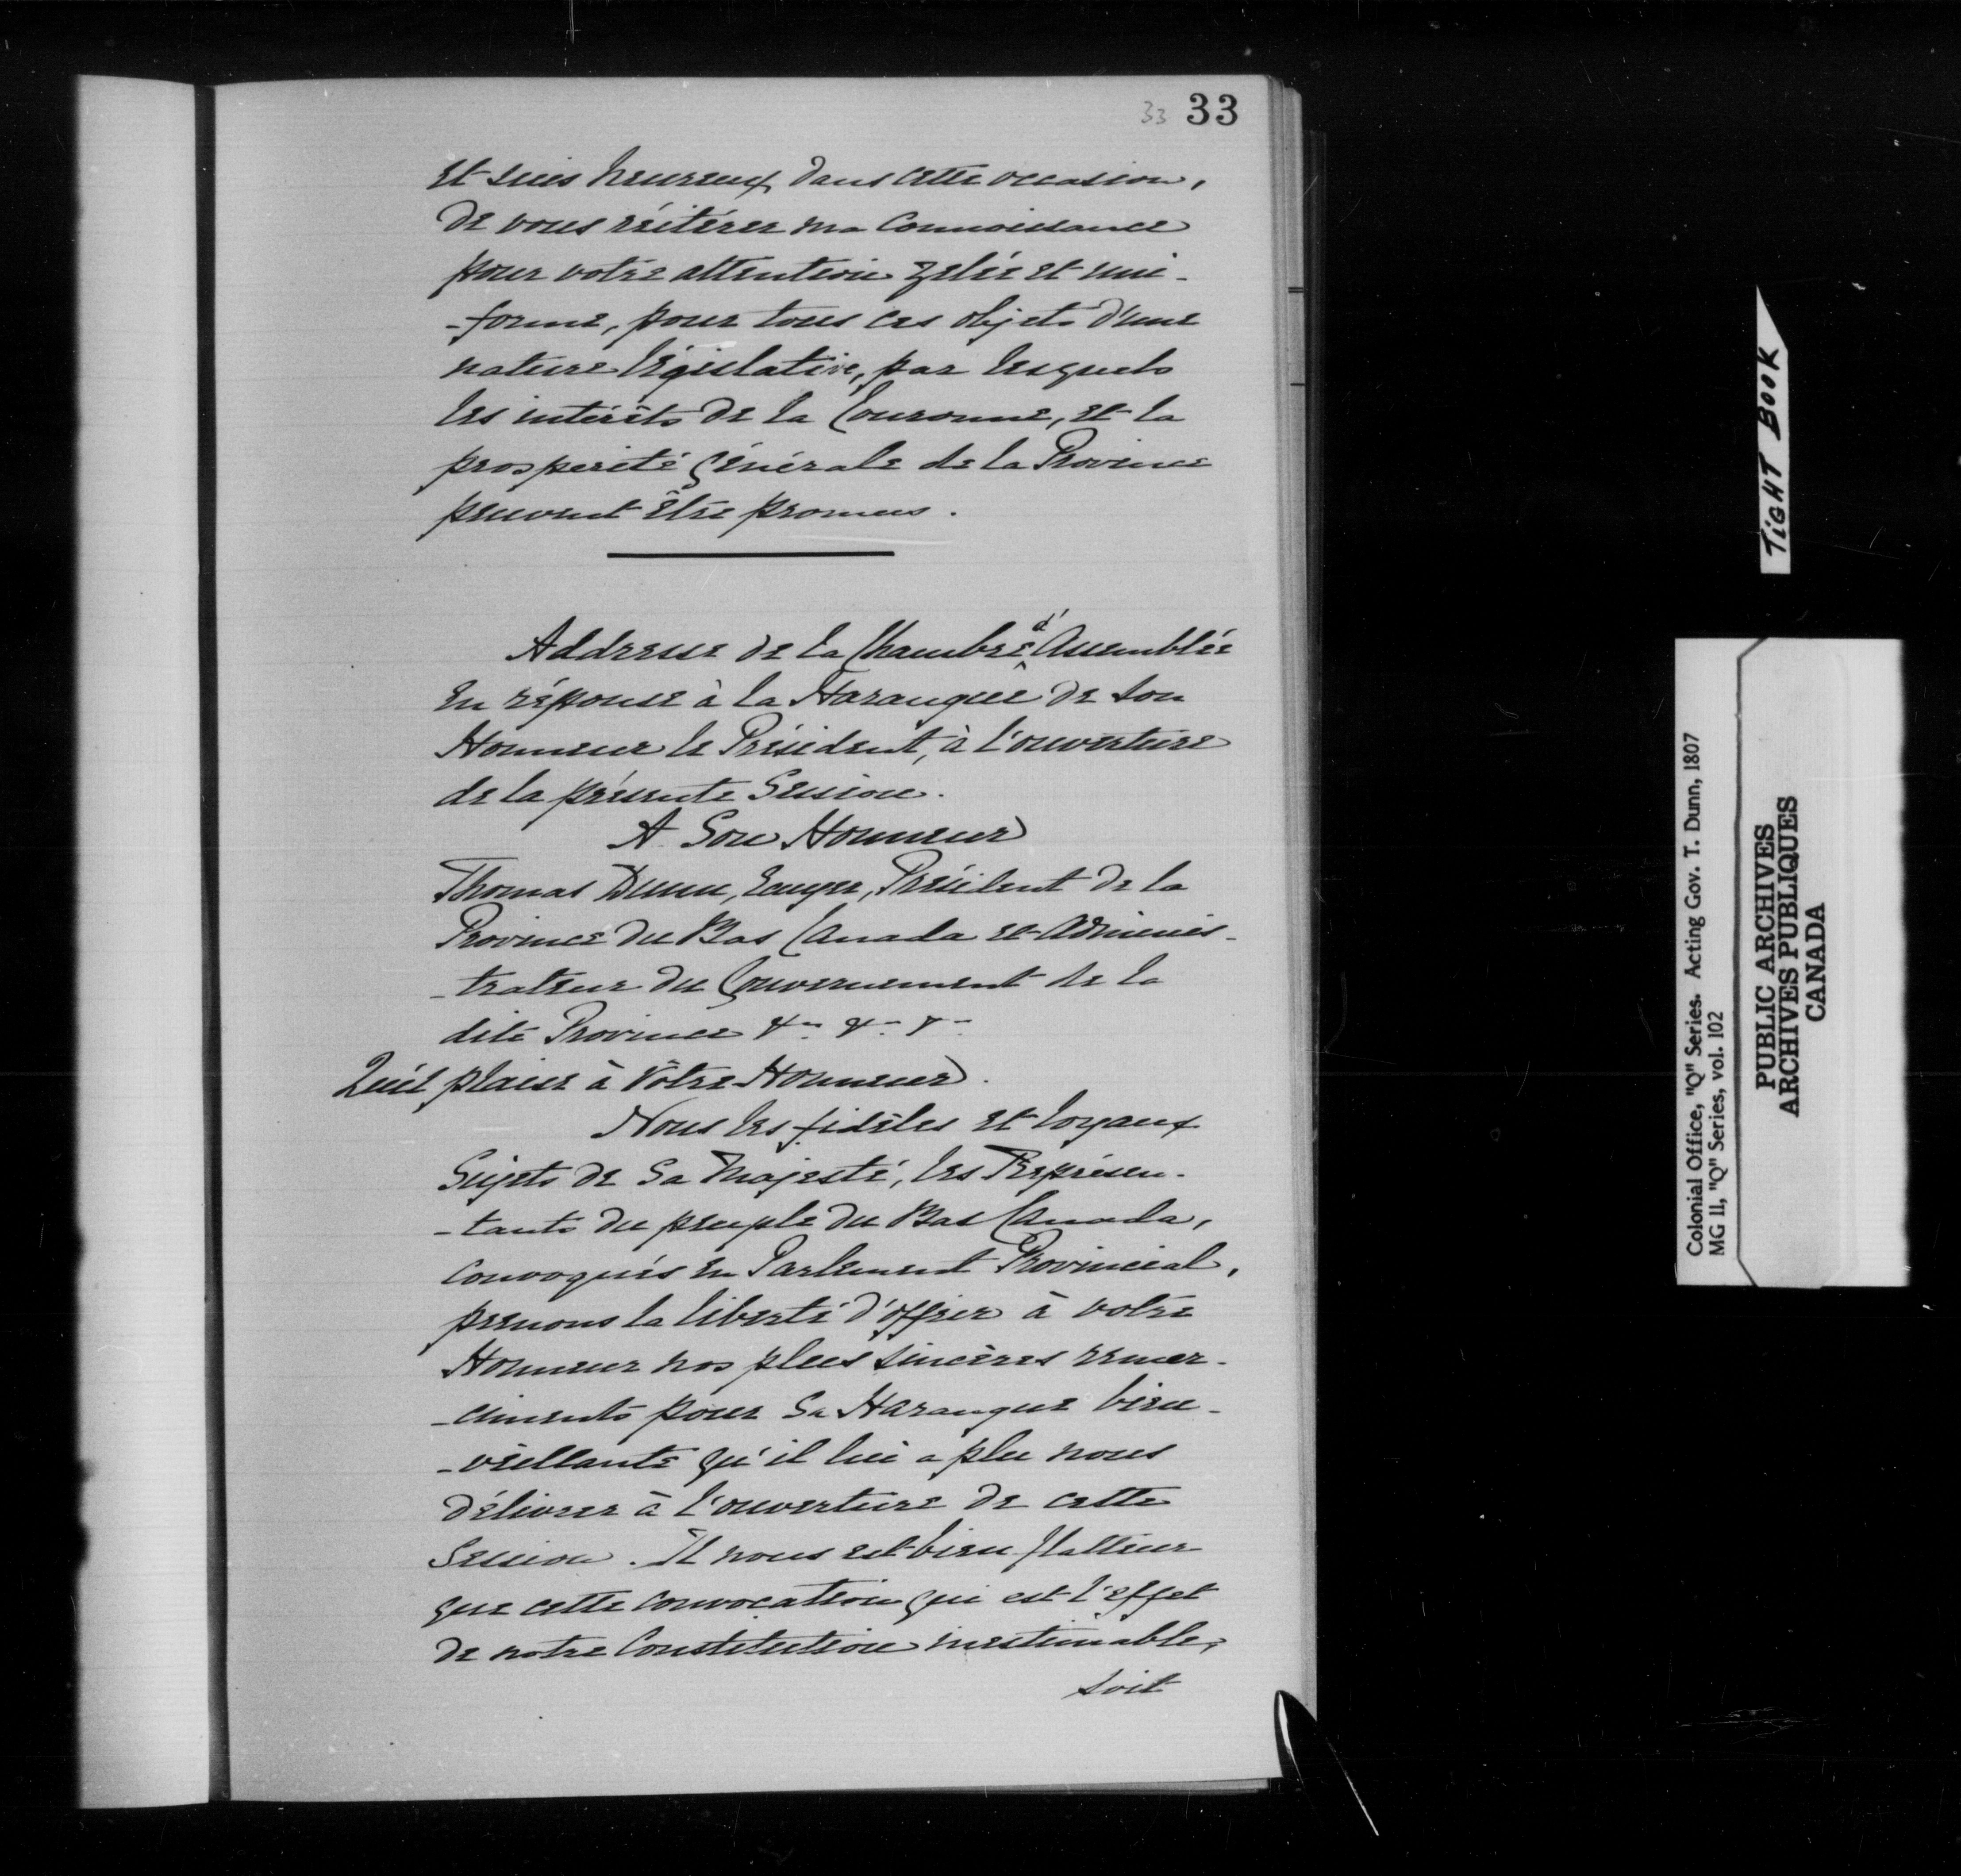 33 33
et suis heureux, dans cette occasion,
de vous réitérer ma Connoissance
pour votre attention zelée et uni-
-forme, pour tous ces objets d'une
nature législative, par lesquels
les intérêts de la Couronne, et la
prosperité générale de la Province
peuvent être promus.
Addresse de la Chambre d'Assemblée
en réponse à la Harangue de son
Honneur le Président, à l'ouverture
de la présente Session.
A Son Honneur
Thomas Dunn, Ecuyer, Président de la
Province du Bas Canada et Adminis-
-trateur du Gouvernement de la
dite Province &c. &c. &c.
Qu'il plaise à Vôtre Honneur.
Nous les fidèles et loyaux
Sujets de Sa Majesté, les Représen-
-tants du peuple du Bas Canada,
convoqués en Parlement Provincial,
prenons la liberté d'offrir à votre
Honneur nos plus sincères remer-
-ciments pour Sa Harangue bien-
-veillante qu'il lui a plu nous
délivrer à l'ouverture de cette
Session. Il nous est bien flatteur
que cette convocation qui est l'effet
de notre Constitution inestimable,
soit
TIGHT BOOK
Colonial Office, "Q" Series. Acting Gov. T. Dunn, 1807
MG 11, "Q" Series, vol. 102
PUBLIC ARCHIVES
ARCHIVES PUBLIQUES
CANADA